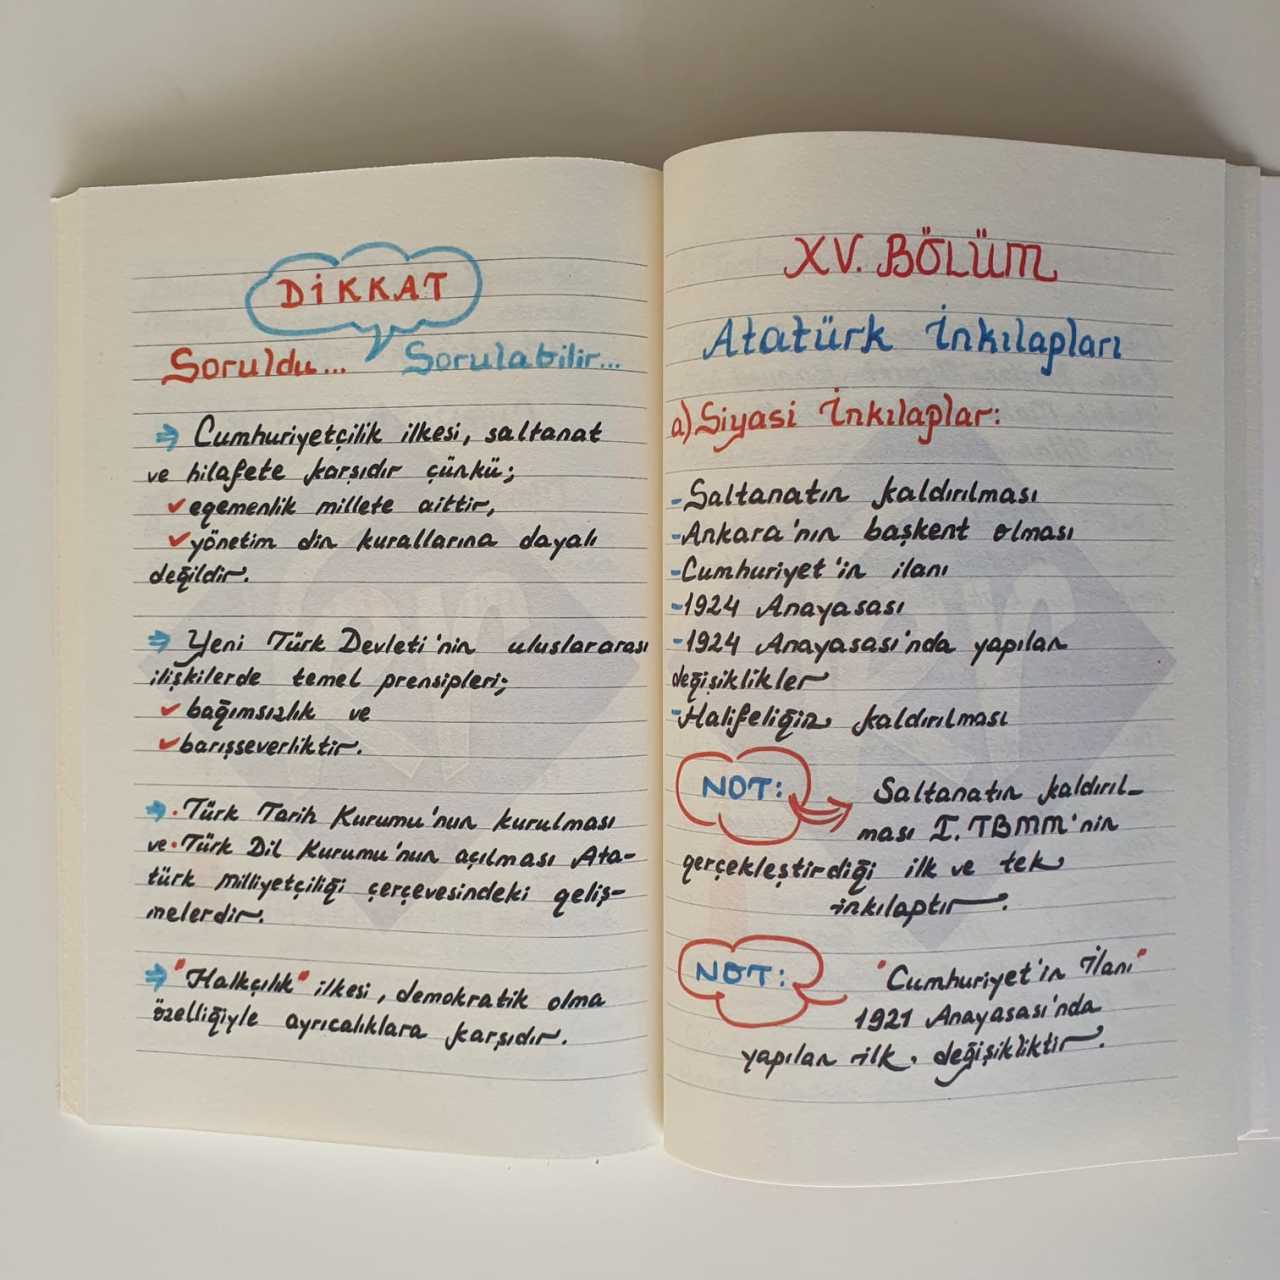 DİKKAT
Soruldu... Sorulabilir...
⇒ Cumhuriyetçilik ilkesi, saltanat
ve hilafete karşıdır çünkü;
✓egemenlik millete aittir,
✓yönetim din kurallarına dayalı
değildir.
⇒ Yeni Türk Devleti'nin uluslararası
ilişkilerde temel prensipleri;
✓ bağımsızlık ve
✓barışseverliktir.
⇒ • Türk Tarih Kurumu'nun kurulması
ve • Türk Dil Kurumu'nun açılması Ata-
türk milliyetçiliği çerçevesindeki geliş-
melerdir.
⇒ "Halkçılık" ilkesi, demokratik olma
özelliğiyle ayrıcalıklara karşıdır.
XV. BÖLÜM
Atatürk İnkılapları
a) Siyasi İnkılaplar:
-Saltanatın kaldırılması
-Ankara'nın başkent olması
-Cumhuriyet'in ilanı
-1924 Anayasası
-1924 Anayasası'nda yapılan
değişiklikler
-Halifeliğin kaldırılması
NOT: Saltanatın kaldırıl-
ması I. TBMM'nin
gerçekleştirdiği ilk ve tek
inkılaptır.
NOT: "Cumhuriyet'in İlanı"
1921 Anayasası'nda
yapılan ilk değişikliktir.